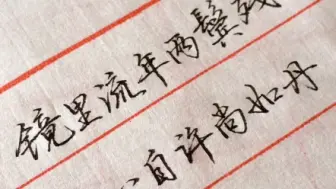 镜里流年两鬓残
自许尚如丹